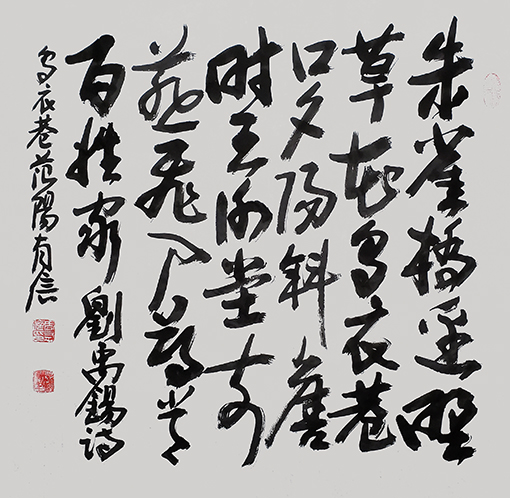 朱雀橋邊野
草花烏衣巷
口夕陽斜舊
時王謝堂前
燕飛入尋常
百姓家 劉禹錫詩
烏衣巷 范陽有信